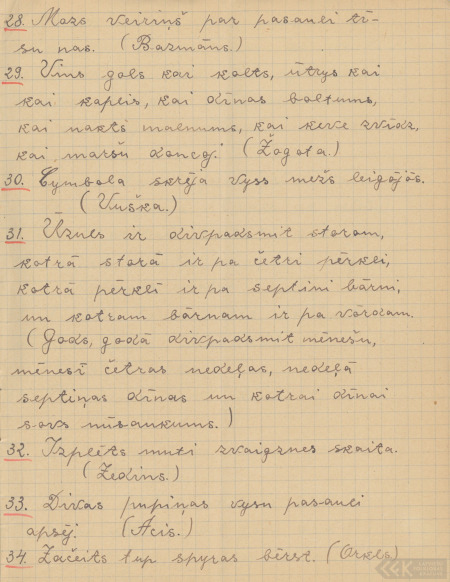 28. Mozs veiriņš par pasauli tī-
su nas. (Bazmāns.)
29. Vins gols kai kolts, ūtrys kai
kai kapleis, kai dīnas boltums,
kai nakts malnums, kai keve zvīdz,
kai maršu doncoj. (Žogota.)
30. Cymbola skrēja vyss mežs leigōjōs.
(Vuška.)
31. Ūzuls ir divpadsmit storom,
kotrā storā ir pa četri pērkli,
kotrā pērklī ir pa septini bārni,
un kotram bārnam ir pa vōrdam.
(Gods, godā divpadsmit mēnešu,
mēnesī četras nedeļas, nedeļā
septiņas dīnas un kotrai dīnai
sovs nūsaukums.)
32. Izplēts muti zvaigznes skaita.
(Zedins.)
33. Divas pupiņas vysu pasauli
apsēj. (Acis.)
34. Začeits tup spyras bērst. (Orkls)